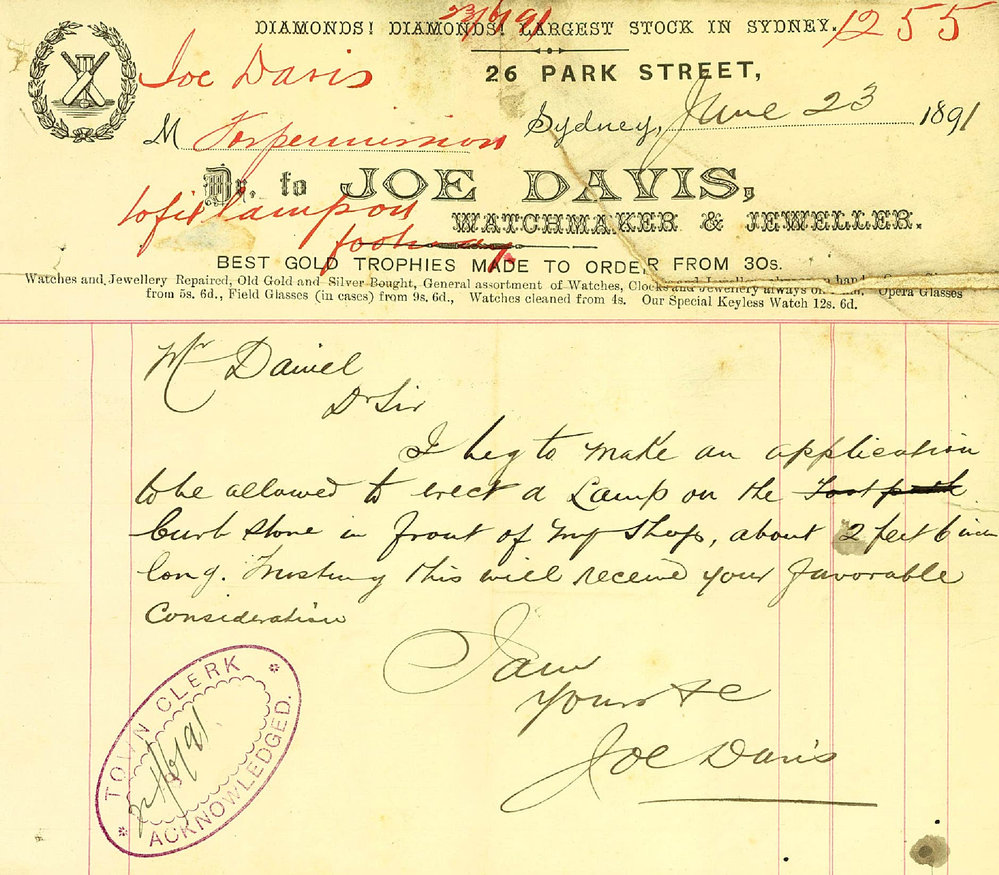 23/6/91
DIAMONDS! DIAMONDS! LARGEST STOCK IN SYDNEY.
1255
Joe Davis
26 PARK STREET,
Sydney, June 23 1891
M For permission
Dr. to JOE DAVIS,
to fix lamp on
WATCHMAKER & JEWELLER.
footway
BEST GOLD TROPHIES MADE TO ORDER FROM 30s.
Watches and Jewellery Repaired, Old Gold and Silver Bought, General assortment of Watches, Clocks and Jewellery always on hand. Opera Glasses
from 5s. 6d., Field Glasses (in cases) from 9s. 6d., Watches cleaned from 4s. Our Special Keyless Watch 12s. 6d.
Mr Daniel
Dr Sir
I beg to make an application
to be allowed to erect a Lamp on the Foot path
Curb stone in front of my Shop, about 2 feet 6 inch
long. Trusting this will receive your favorable
Consideration
I am
Yours &c
Joe Davis
TOWN CLERK
/6/91
ACKNOWLEDGED.